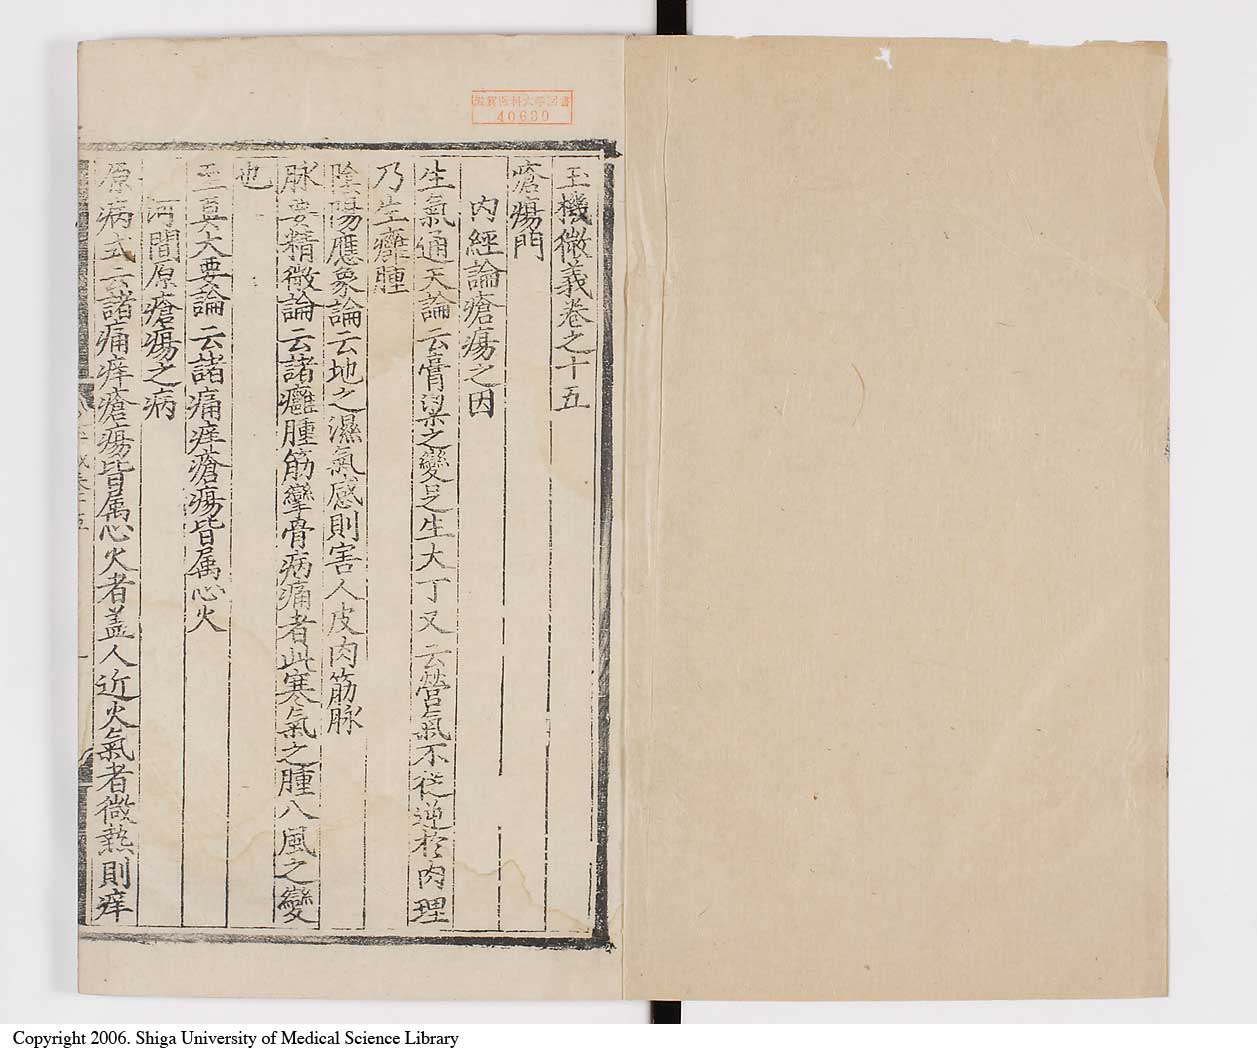 滋賀医科大学図書
40639
玉機微義卷之十五
瘡瘍門
內經論瘡瘍之因
生氣通天論云膏粱之變足生大丁又云營氣不從逆於肉理
乃生癰腫
陰陽應象論云地之濕氣感則害人皮肉筋脉
脉要精微論云諸癰腫筋攣骨病痛者此寒氣之腫八風之變
也
至眞大要論云諸痛痒瘡瘍皆属心火
河間原瘡瘍之病
原病式云諸痛痒瘡瘍皆属心火者盖人近火氣者微熱則痒
Copyright 2006. Shiga University of Medical Science Library